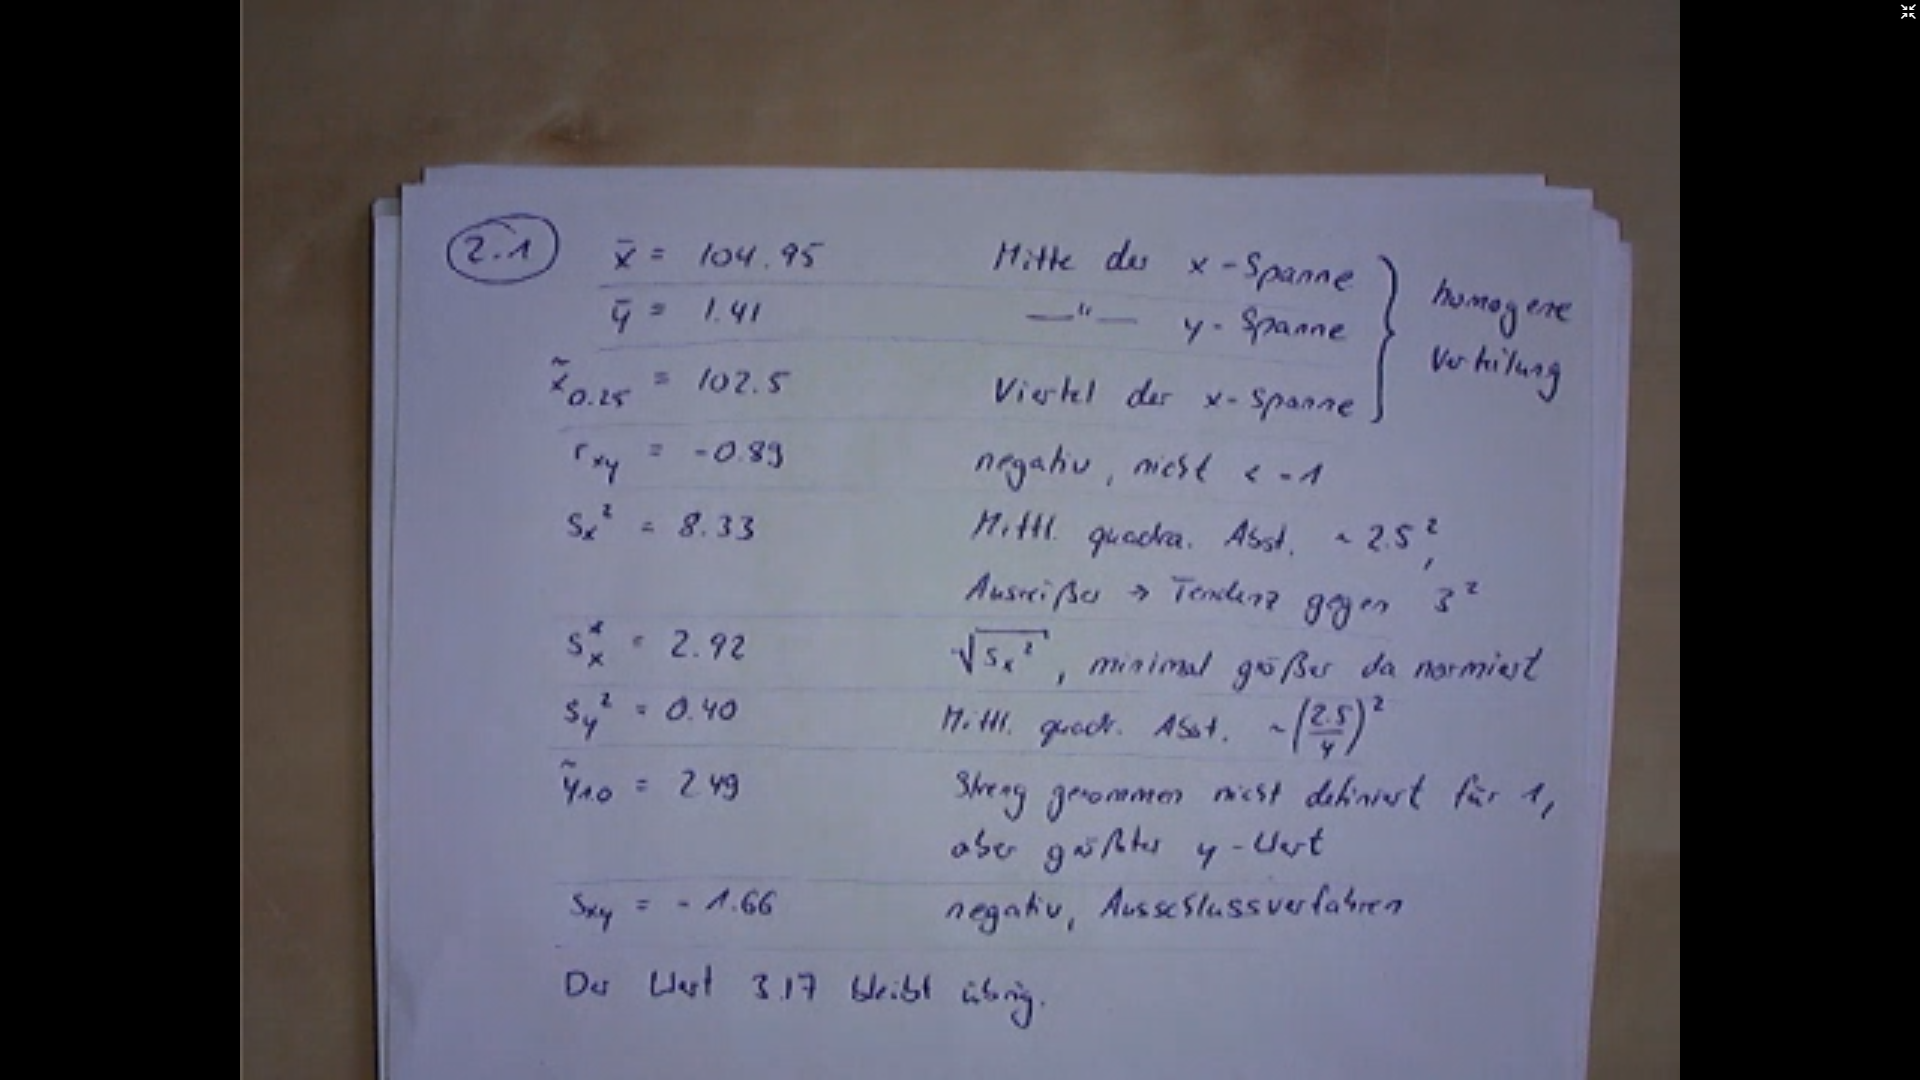 2.1 x̄ = 104.95 Mitte der x-Spanne
ȳ = 1.41 —"— y-Spanne
homogene Verteilung
x̃0.25 = 102.5 Viertel der x-Spanne
rxy = -0.89 negativ, nicht < -1
sx² = 8.33 Mittl. quadra. Abst. ~ 2.5²,
Ausreißer → Tendenz gegen 3²
sx* = 2.92 √sx², minimal größer da normiert
sy² = 0.40 Mittl. quadr. Abst. ~(2.5/4)²
ỹ1.0 = 2.49 Streng genommen nicht definiert für 1,
aber größter y-Wert
sxy = -1.66 negativ, Ausschlussverfahren
Der Wert 3.17 bleibt übrig.